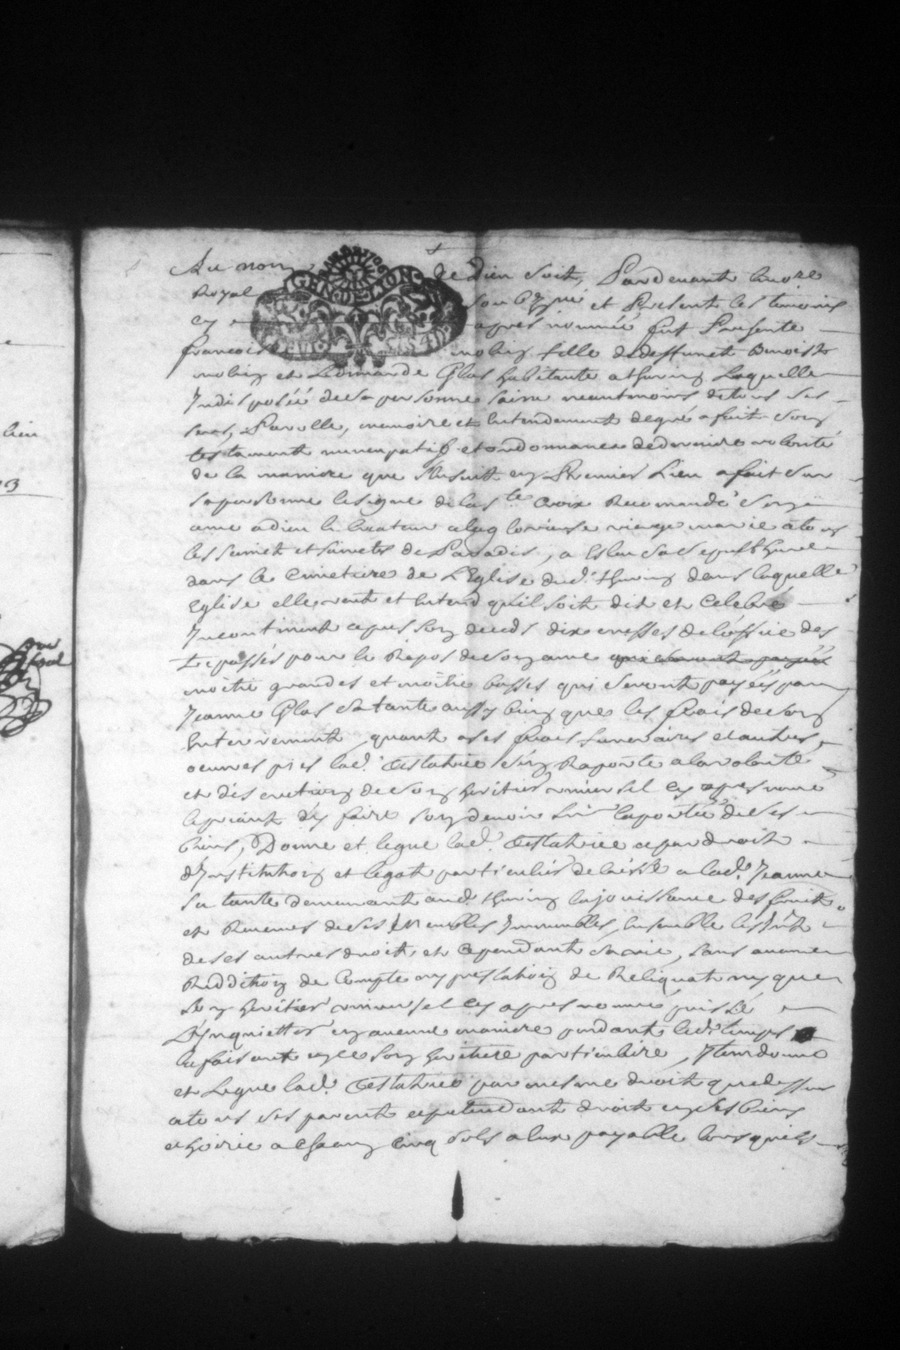 Au nom de Dieu soit, Pardevant le no.re
Royal soubz.gné et Present les temoins
cy apres nommé fut Presente
francoise fille de deffunct Benoist
et Leonnarde Glas habitante a thurins Laquelle
Indisposée de sa personne saine neantmoins de tous ses
sens, Parolle, memoire et Entendement de gré a fait son
testament nuncupatif et ordonnance de derniere volonté
de la maniere que s'ensuit en Premier Lieu a fait sur
sa personne le signe de la S.te Croix Recomandé son
ame a dieu le Createur a la glorieuse vierge marie a tous
les saincts et sainctes de Paradis, a Esleu sa sepulthure
dans le Cimetiere de L'Eglise dud. thurins dans laquelle
Eglise elle veut et Entend qu'il soit dit et Celebré
Incontinent apres son deceds dix messes de l'office des
trepassés pour le Repos de son ame qui seront payées
moitié grandes et moitié basses qui seront payées par
Jeanne Glas sa tante aussy bien que les frais de son
Enterrement, quant a ses frais funeraires et autres
oeuvres pies lad. Testatrice s'en Raporte a la volonté
et discretion de son heritier universel cy apres nommé
le priant d'y faire son devoir sur la portée de ses
biens, Donne et legue lad. Testatrice a par droit
d'Institution et legat particulier delaisse a lad. Jeanne
sa tante demeurant aud. thurins la jouissance des fruits
et Revenus de ses meubles Immeubles, Ensemble
de ses autres droits et cependant sa vie, sans aucune
Reddition de Compte ny prestation de Reliquat ny que
son heritier universel cy apres nommé, puisse
L'Inquietter en aucune maniere pendant led. temps
la faisant en ce son heritiere particuliere, Item donne
et Legue lad. Testatrice par mesme droit que dessus
a tous ses parents et pretendant droit en ses biens
et hoirie a chacun Cinq sols a eux payable lors qu'ils
GEN DE LION
lieu